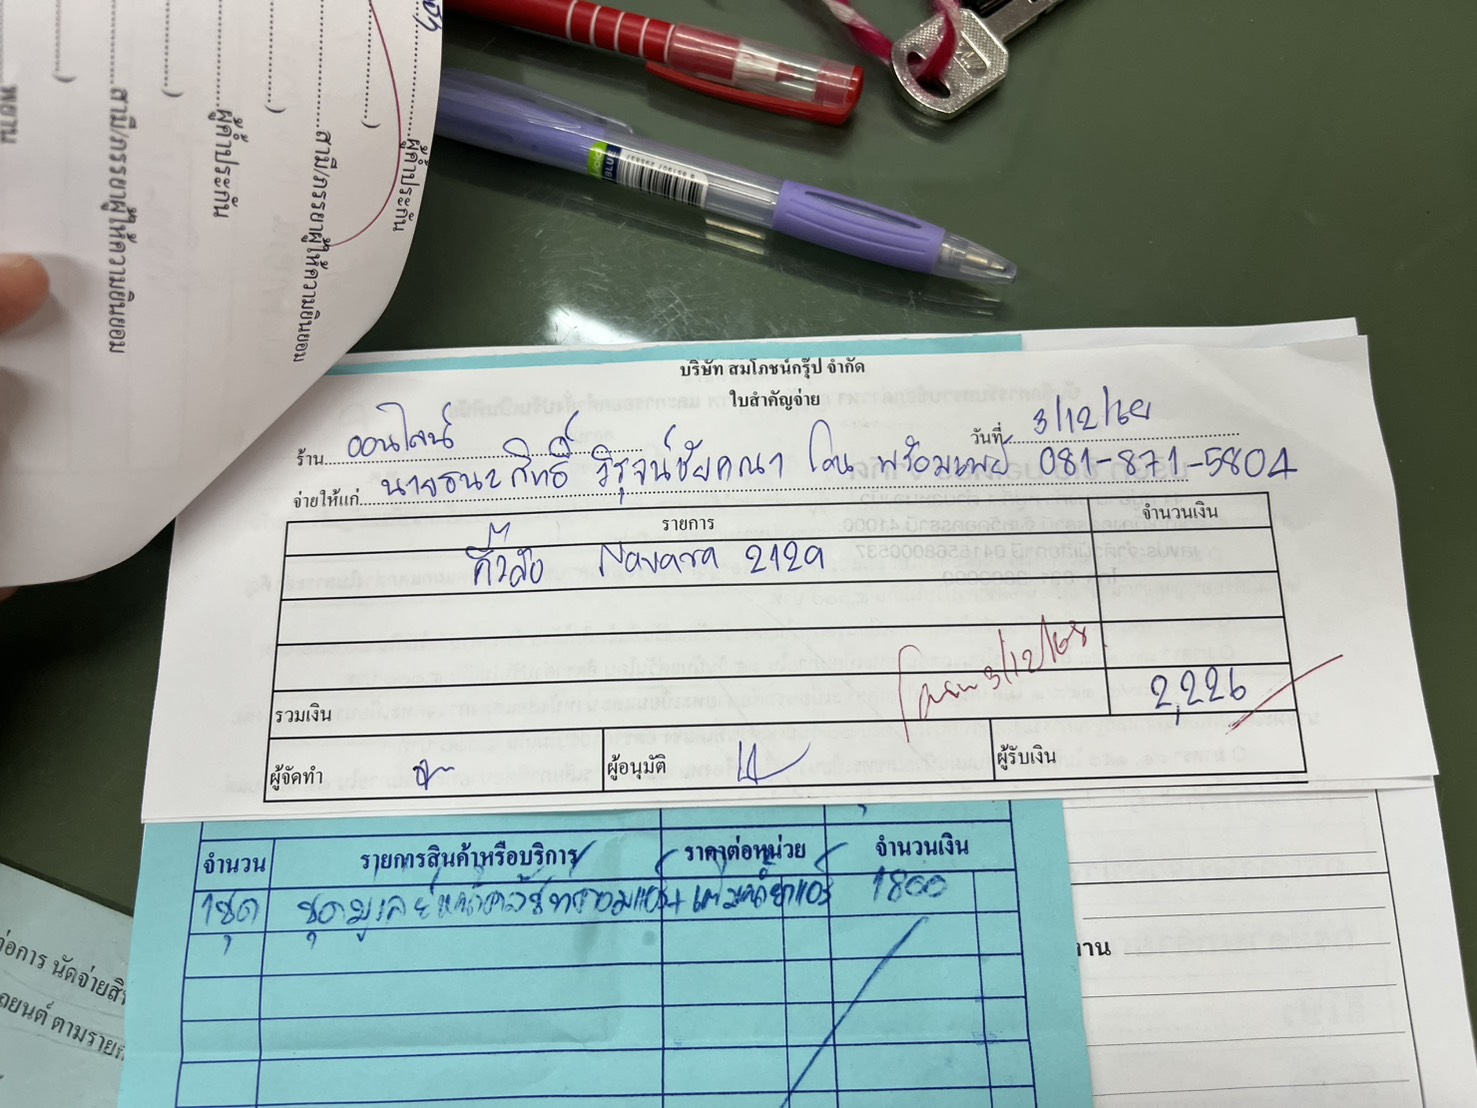 ผู้ค้ำประกัน
สามี/ภรรยาผู้ให้ความยินยอม
ผู้ค้ำประกัน
สามี/ภรรยาผู้ให้ความยินยอม
พยาน
บริษัท สมโภชน์กรุ๊ป จำกัด
ใบสำคัญจ่าย
ร้าน ออนไลน์ วันที่ 3/12/68
จ่ายให้แก่ นายธนะสิทธิ์ วิรุจน์ชัยคณา โอน พร้อมเพย์ 081-871-5804
รายการ จำนวนเงิน
Navara 2129
โอนแล้ว 3/12/68
รวมเงิน 2,226
ผู้จัดทำ ผู้อนุมัติ ผู้รับเงิน
จำนวน รายการสินค้าหรือบริการ ราคาต่อหน่วย จำนวนเงิน
1ชุด ชุดมูเลย์หน้าคลัชคอมแอร์+เติมน้ำยาแอร์ 1800
ต่อการ นัดจ่ายสิน
ถยนต์ ตามราย